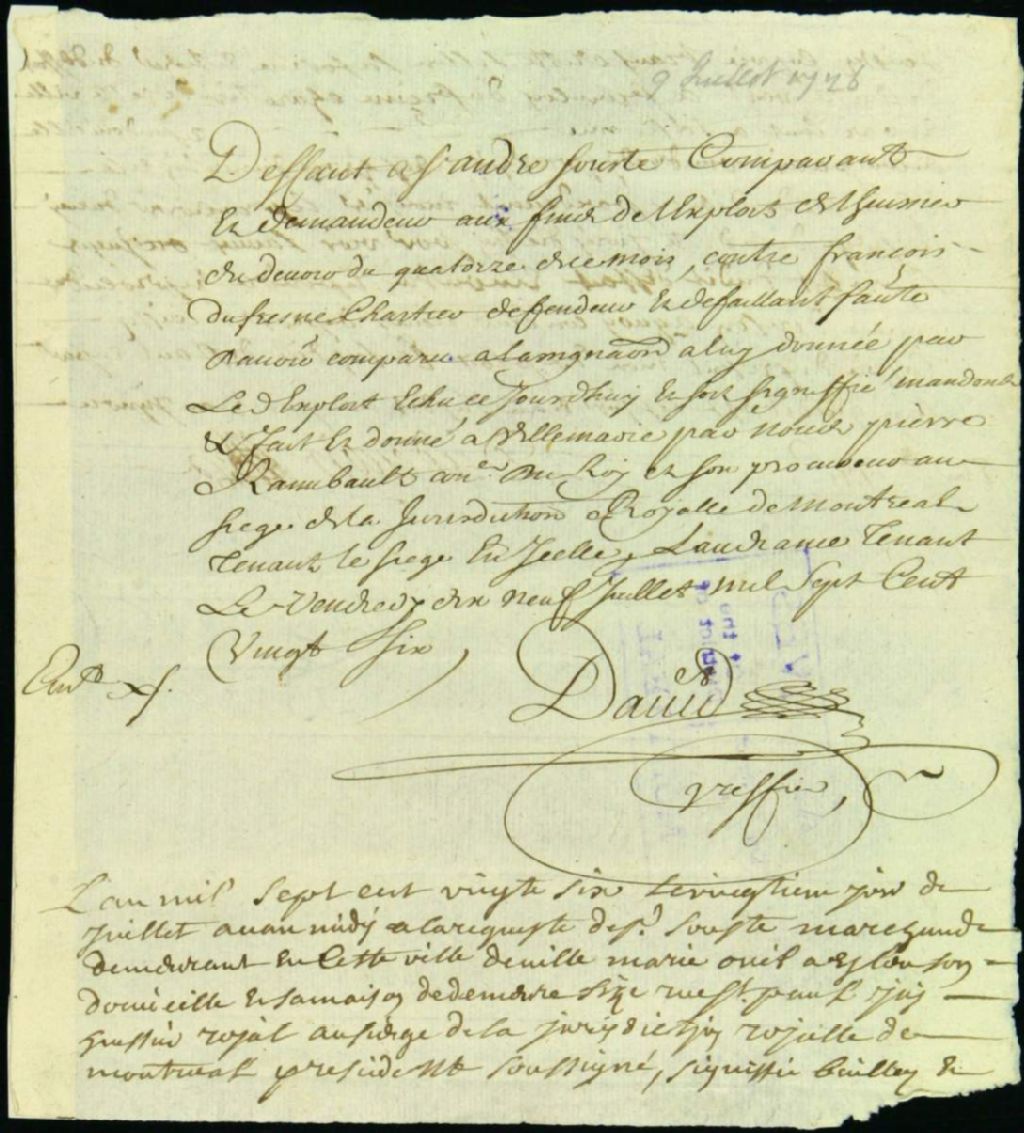 9 Juillet 1726
Deffaut a Sr andre souste Comparant
Et demandeur aux fins de lExploit de
du quatorze de ce mois, contre françois
dufresne Chartier deffendeur et defaillant faute
davoir comparu a lassignaon a luy donnée par
Le d Exploit Echu ce Jourdhuy Et soit signiffié mandons
&c fait Et donné a villemarie par nous pierre
Raimbault conr du Roy et son procureur au
siege de la Jurisdiction Royalle de Montreal
Tenant le siege En Icelle, Laudiance Tenant
Le Vendredy dix neuf Juillet mil Sept Cent
Vingt Six
David
greffier
Lan mil sept cent vingt six le vingtiem jour de
juillet avan midy a la requeste de sr. souste marchand
demeurant en Cette ville de ville marie ou il a eslu son
domicille en sa maison de demeure size rue st. paul je
huissier rojal au siege de la jurisdiction rojalle de
montreal y residant soussigné, signiffié bailley &